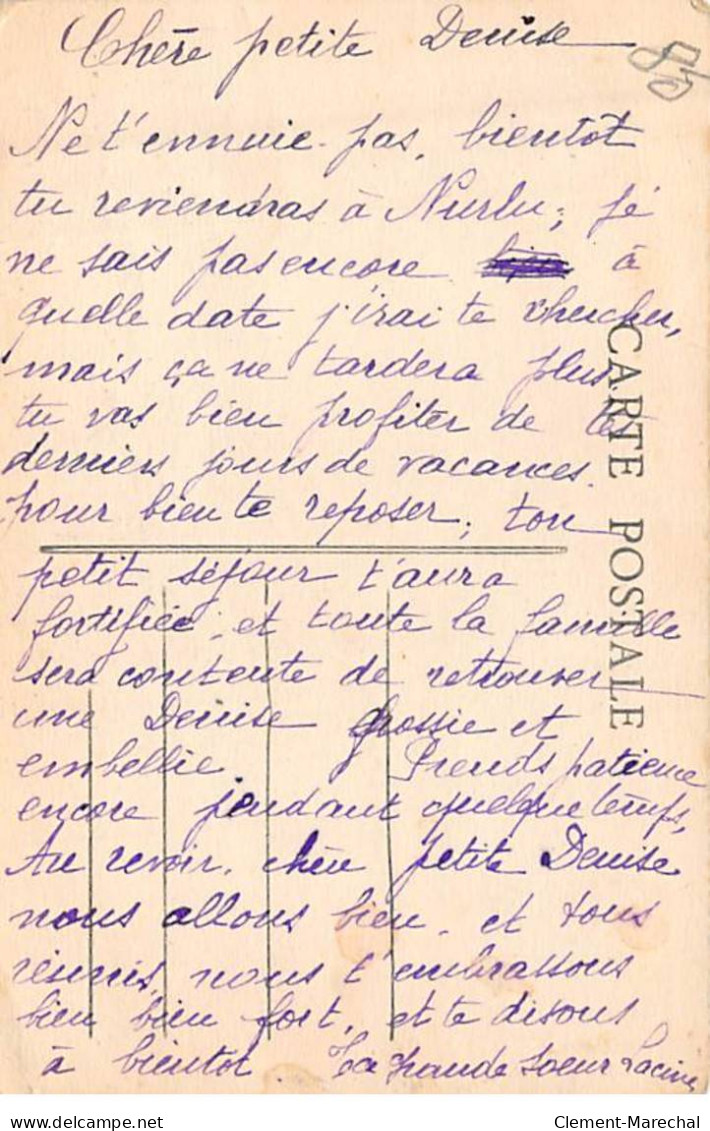 Chère petite Denise
85
Ne t'ennuie pas, bientôt
tu reviendras à Nurlu; je
ne sais pas encore à
quelle date j'irai te chercher,
mais ça ne tardera plus
tu vas bien profiter de tes
derniers jours de vacances.
pour bien te reposer; ton
petit séjour t'aura
fortifiée, et toute la famille
sera contente de retrouver
une Denise grossie et
embellie. Prends patience
encore pendant quelque temps,
Au revoir, chère petite Denise
nous allons bien, et tous
réunis, nous t'embrassons
bien bien fort, et te disons
à bientôt. Ta grande soeur
CARTE POSTALE
Clement-Marechal